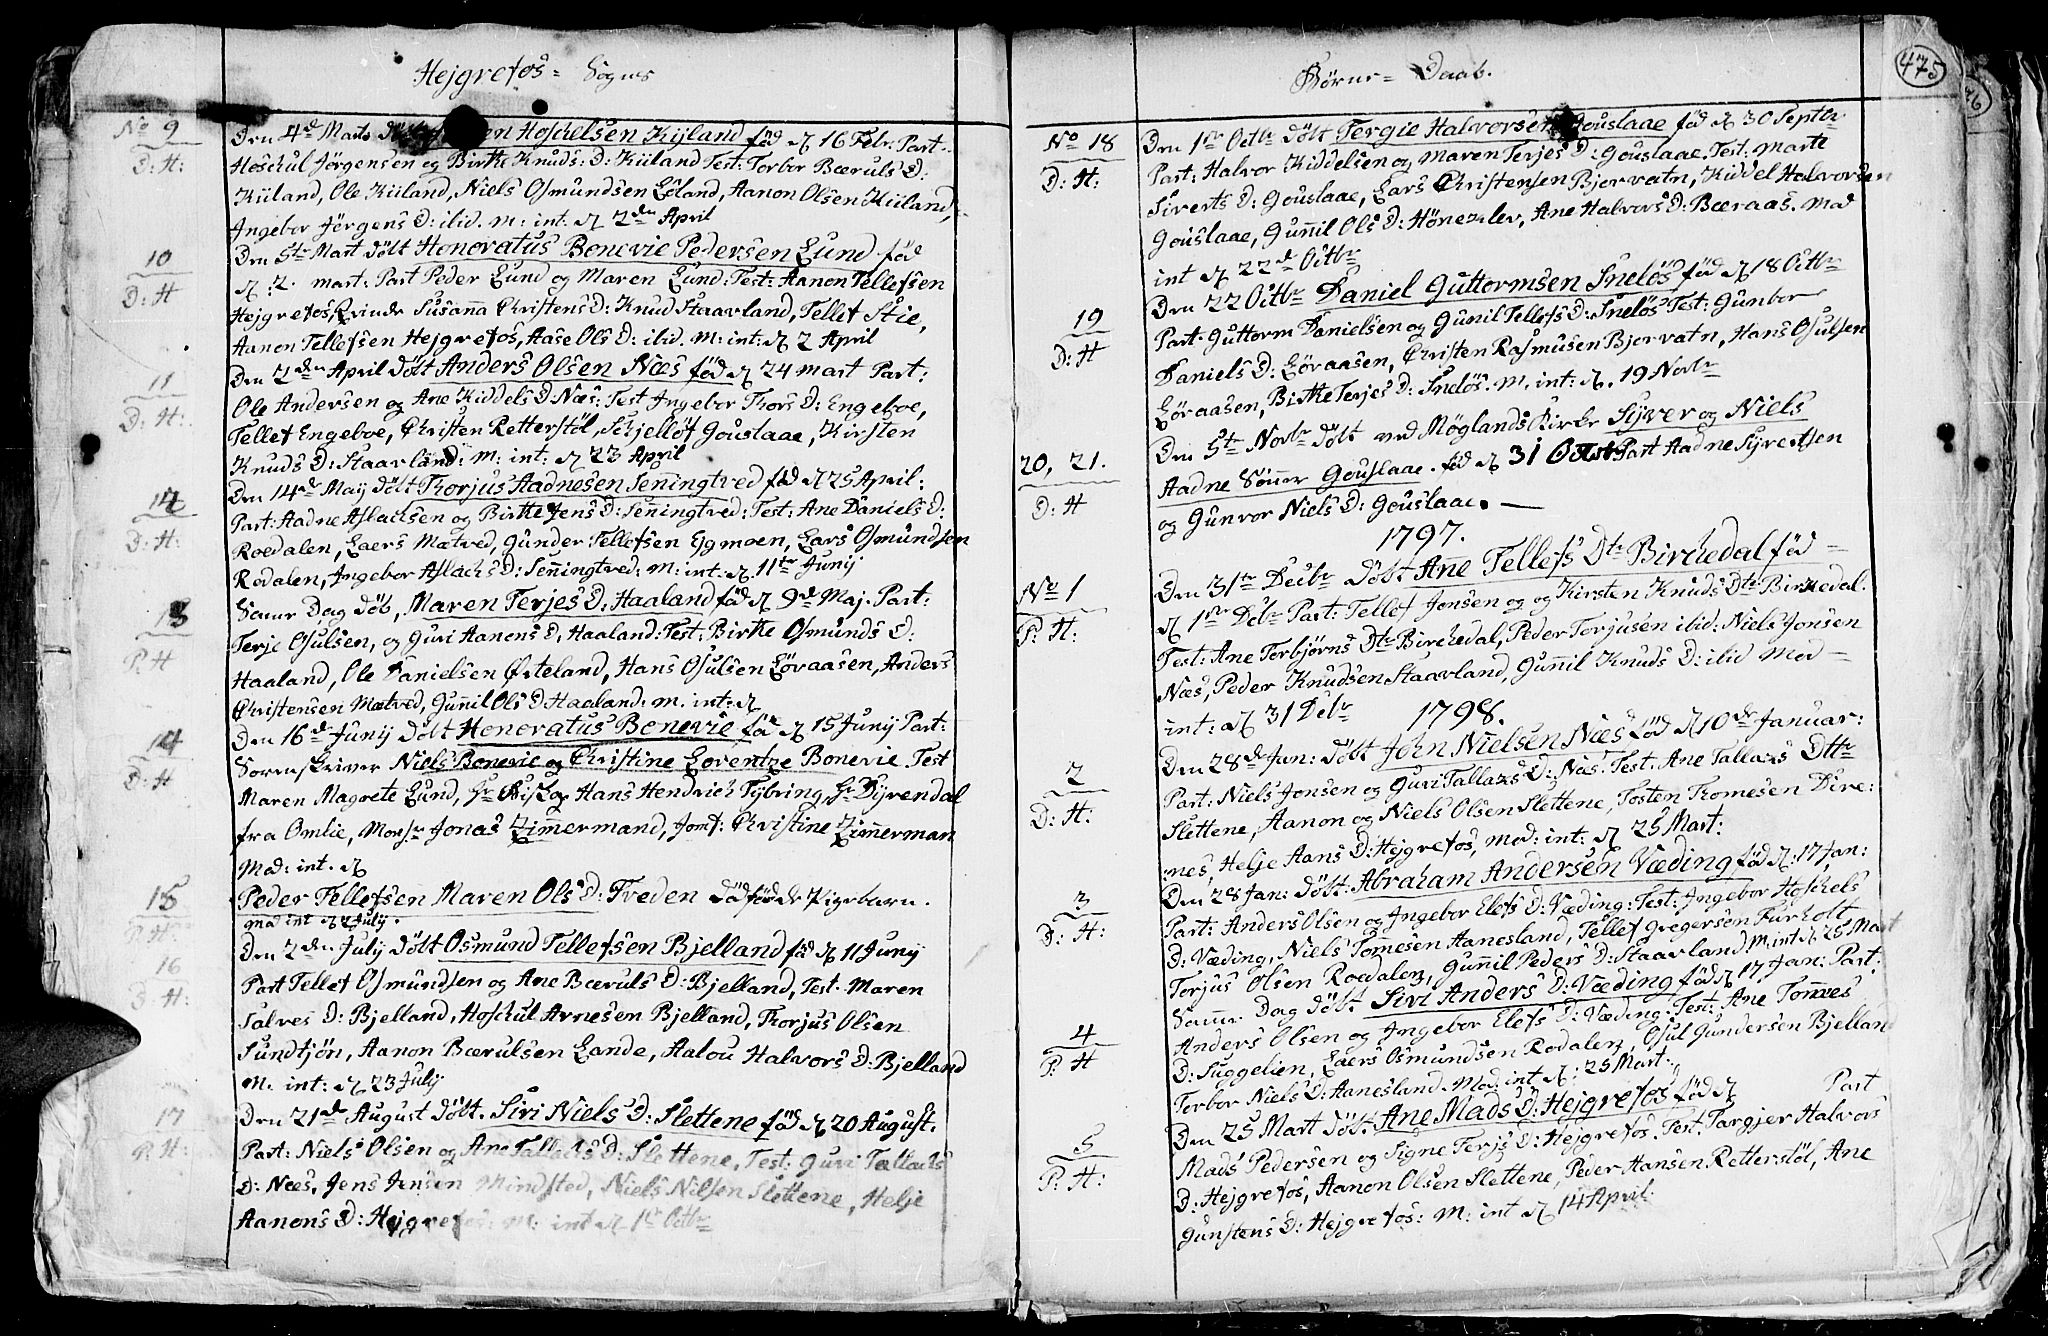 Hejgrefos = Sogns
No 9
D: H:
Den 4d Marts døbt Hoskelsen Kijland fød d 16 Febr: Part:
Hoskul Jörgensen og Birthe Knuds: D: Kiiland Test: Torbor Bæruls D:
Kiiland, Ole Kiiland, Niels Osmundsen Esland, Aanon Olsen Kiiland,
Ingebor Jörgens D: ibid. m: int: d 2den April
10
D: H
Den 5te Mart døbt Honoratus Bonevie Pedersen Lund fød
d 2. mart: Part Peder Lund og Maren Lund: Test: Aanon Tellefsen
Hejgrefos, Qvinde Susanna Christens D: Knud Staavland, Tellef Stie,
Aanon Tellefsen Hejgrefos, Aase Ols D: ibid. M: int: d 2 April
11
D: H:
Den 2den April døbt Anders Olsen Næs fød d 24 mart Part:
Ole Andersen og Ane Kiddels D: Næs: Test Ingebor Thors D: Engeboe,
Tellef Engeboe, Christen Retterstöl, Schjellöf Gouslaae, Kirsten
Knuds D: Staavland: m: int: d 23 April
D: H:
Den 14de Maij døbt Thorjus Aadnesen Seningtved fød d 25 April:
Part: Aadne Aslacksen og Birthe Jens D: Seningtved: Test: Ane Daniels D:
Roedalen, Laers Mætved, Gunder Tellefsen Egmoen, Lars Osmundsen
Rodalen, Ingebor Aslachs D: Senningtved: m: int: d 11te Junij
13
P. H
Samme Dag døb, Maren Terjes D: Haaland fød d 9d Maj: Part:
Terje Osulsen, og Guri Aanons D, Haaland: Test: Birthe Osmunds D:
Haaland, Ole Danielsen Österland, Hans Osulsen Löraasen, Anders
Christensen Mætved, Gunnil Ols D Haaland: m. int: d
14
D: H
Den 16d Junij døbt Honoratus Bonevie fød d 15 Junij Part:
Sorenskriver Niels Bonevie og Christine Lorentze Bonevie Test
Maren Magrete Lund, Hr Biskop Hans Hendrich Tÿbring, Hr Dyrendal
fra Omlie, Monsr Jonas Zimmermand, Jomf: Christine Zimmerman
Mod: int. d
15
P: H:
Peder Tellefsen Maren Ols D: Tveden dødfødde Pigebarn.
mod int d 2 July.
16
D: H:
Den 2den July døbt Osmund Tellefsen Bjelland fød d 11 Junij
Part Tellef Osmundsen og Ane Bæruls D: Bjelland, Test: Maren
Salves D: Bjelland, Hoskul Arnesen Bjelland, Thorjus Olsen
Sundtjön, Aanon Bærulsen Lande, Aalou Halvors D: Bjelland
M. int: d 23 July
17
P. H:
Den 21de August døbt. Siri Niels D: Slettene fød d 20 August.
Part: Niels Olsen og Ane Tallachs D: Slettene, Test: Guri Tallachs
D: Næs, Jens Jensen Mindsted, Niels Nilsen Slettene, Helje
Aanons D: Hejgrefos: M: int d 1te Octbr
475
Börne = Daab.
No 18
D: H:
Den 1te Octbr døbt Tergie Halvorsen Gouslaae fød d 30 Septbr
Part: Halvor Kiddelsen og Maren Terjes D: Gouslaae. Test: Marte
Siverts D: Gouslaae, Lars Christensen Bjorvatn, Kiddel Halvorsen
Gouslaae, Gunnil Ols D: Hönezlev, Ane Halvors D: Bæraas. mod
int d 22d Octbr
19
D: H
Den 22 Octbr Daniel Guttormsen Snelös fød d 18 Octbr
Part: Guttorm Danielsen og Gunil Tellefs D: Snelös Test: Gunbor
Daniels D: Löraasen, Christen Rasmusen Bjorvatn, Hans Osulsen
Löraasen, Birthe Terjes D: Snelös. m. int: d. 19 Novbr
20, 21.
D: H
Den 5te Novbr døbt ved Möglands Kirke Syver og Niels
Aadne Sönner Gouslaae. fød d 31 Octobr Part Aadne Syvertsen
og Gunvor Niels D: Gouslaae. —
1797.
No 1
P: H:
Den 31te Decbr døbt Ane Tellefs Dtr Birchedal fød =
d 1te Debr Part: Tellef Jonsen og og Kirsten Knuds Dtr Birkedal.
Test: Ane Torbjörns Dtr Birchedal, Peder Torjusen ibid: Niels Jonsen
Næs, Peder Knudsen Staavland, Gunnil Knuds D: ibid Mod =
int: d 31 Debr
1798.
2
D: H:
Den 28d Jan: döbt John Nielsen Næs fød d 10de Januar:
Part: Niels Jonsen og Guri Tallaxs D: Næs. Test: Ane Tallaxs Dttr
Slettene, Aanon og Niels Olsen Slettene, Tosten Thomesen Dire:
mes, Helje Aans D: Hejgrefos, mod: int: d 25 Mart:
3
D: H:
Den 28 Jan: döbt: Abraham Andersen Væding fød d: 17 Jan:
Part: Anders Olsen og Ingebor Elefs D: Væding: Test: Ingebor Hoskels
D: Væding, Niels Tomesen Aanesland, Tellef Gregersen Furholt
Torjus Olsen Roedalen, Gunnil Peders D: Staavland: M: int d 25 Mart
4
P. H
Samme Dag döbt Siri Anders D: Væding fød d 17 Jan: Part:
Anders Olsen og Ingebor Elefs D: Væding: Test: Ane Tommes
D: Suggelien, Laers Osmundsen Rodalen, Osul Gundersen Bjelland
Torbor Niels D: Aanesland. Mod: int d: 25 Mart:
5
P: H:
Den 25 Mart döbt Ane Mads D: Hejgrefos fød d Part
Mads Pedersen og Signe Terjs D: Hejgrefos. Test. Targjer Halvors
D: Hejgrefos, Aanon Olsen Slettene, Peder Hansen Retterstöl, Ane
Gunstens D: Hejgrefos: M: int d 14 April.